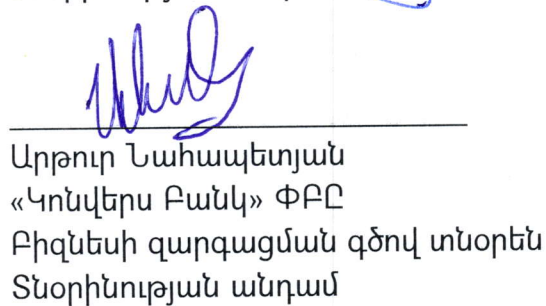 Արթուր Նահապետյան
«Կոնվերս Բանկ» ՓԲԸ
Բիզնեսի զարգացման գծով տնօրեն
Տնօրինության անդամ